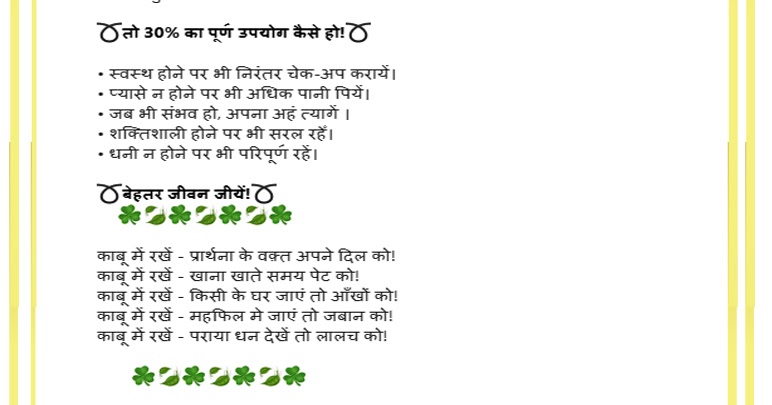 ➰तो 30% का पूर्ण उपयोग कैसे हो!➰
• स्वस्थ होने पर भी निरंतर चेक-अप करायें।
• प्यासे न होने पर भी अधिक पानी पियें।
• जब भी संभव हो, अपना अहं त्यागें ।
• शक्तिशाली होने पर भी सरल रहेँ।
• धनी न होने पर भी परिपूर्ण रहें।
➰बेहतर जीवन जीयें!➰
☘🍃☘🍃☘🍃☘
काबू में रखें - प्रार्थना के वक़्त अपने दिल को!
काबू में रखें - खाना खाते समय पेट को!
काबू में रखें - किसी के घर जाएं तो आँखों को!
काबू में रखें - महफिल मे जाएं तो जबान को!
काबू में रखें - पराया धन देखें तो लालच को!
☘🍃☘🍃☘🍃☘